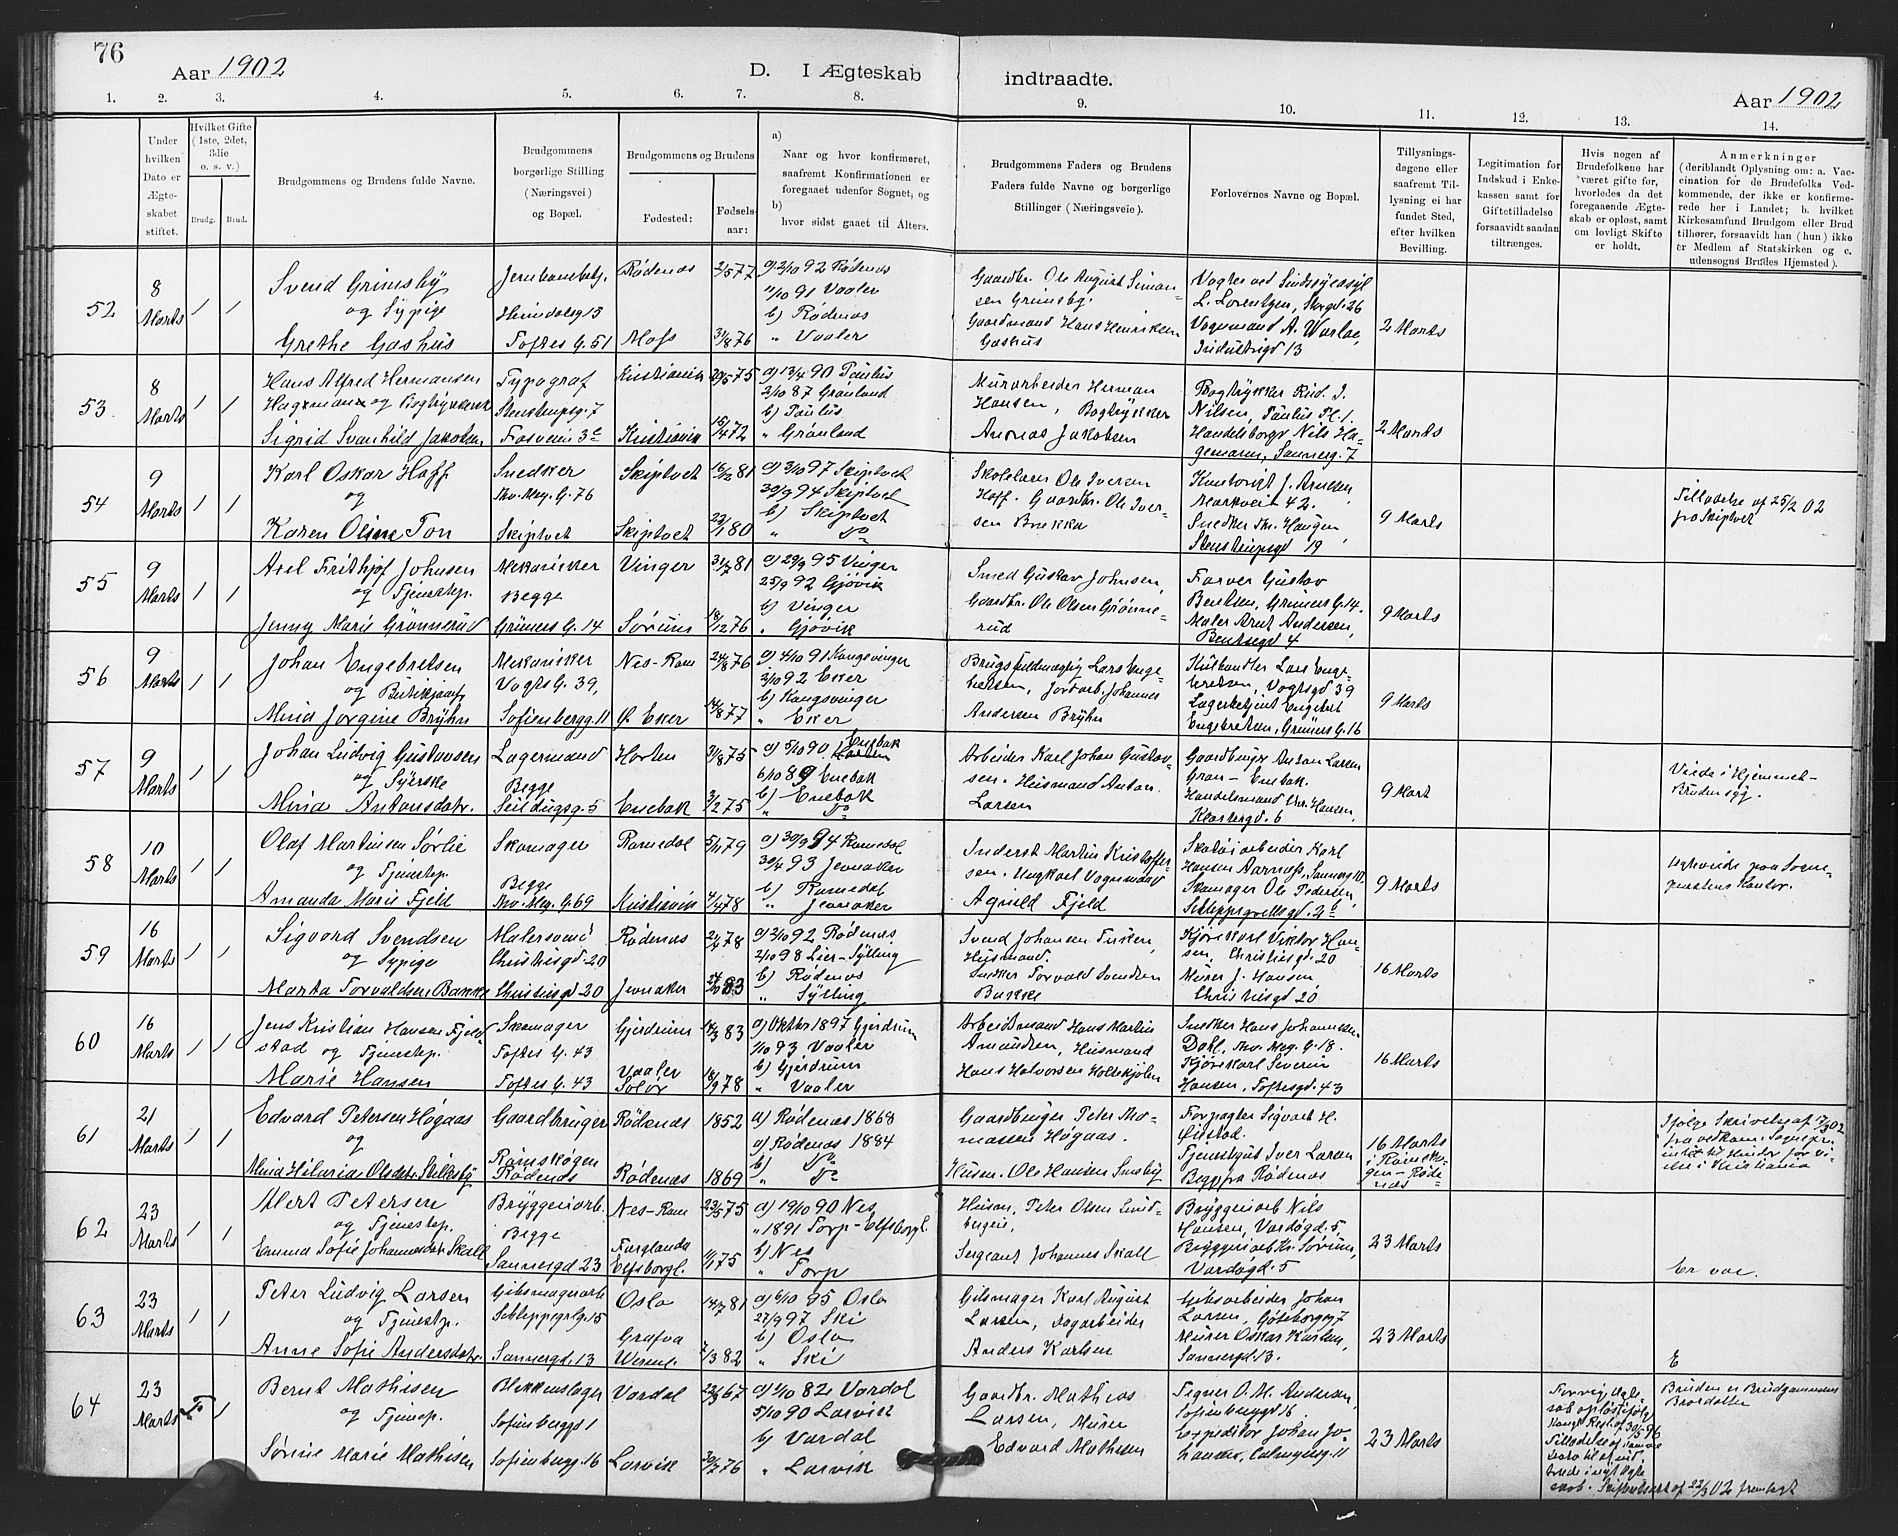 76
Aar 1902
D. I Ægteskab indtraadte.
Aar 1902
1. 2. 3. 4. 5. 6. 7. 8. 9. 10. 11. 12. 13. 14.
Under hvilken Dato er Ægteskabet stiftet.
Hvilket Gifte (1ste, 2det, 3die o. s. v.)
Brudg. Brud.
Brudgommens og Brudens fulde Navne.
Brudgommens borgerlige Stilling (Næringsvei) og Bopæl.
Brudgommens og Brudens
Fødested:
Fødselsaar:
a) Naar og hvor konfirmeret, saafremt Konfirmationen er foregaaet udenfor Sognet, og
b) hvor sidst gaaet til Alters.
Brudgommens Faders og Brudens Faders fulde Navne og borgerlige Stillinger (Næringsveie).
Forlovernes Navne og Bopæl.
Tillysningsdagene eller saafremt Tillysning ei har fundet Sted, efter hvilken Bevilling.
Legitimation for Indskud i Enkekassen samt for Giftetilladelse forsaavidt saadan tiltrænges.
Hvis nogen af Brudefolkene har været gifte før, hvorledes da det foregaaende Ægteskab er opløst, samt om lovligt Skifte er holdt.
Anmerkninger (deriblandt Oplysning om: a. Vaccination for de Brudefolks Vedkommende, der ikke er konfirmerede her i Landet; b. hvilket Kirkesamfund Brudgom eller Brud tilhører, forsaavidt han (hun) ikke er Medlem af Statskirken og c. udensogns Brudes Hjemsted).
52
8 Marts
1 1
Svend Grimsby
og Sypige
Grethe Gashus
Heimdalsg 13
Toftes G. 51
Rødenæs
Moss
2/5 77
31/8 76
a) 2/10 92 Rødenæs
11/10 91 Vaaler
b) Rødenæs
" Vaaler
Gaardbr. Ole August Simonsen Grimsby.
Gaardmand Hans Henriksen
Gashus
L. Lorentzen, Storgd. 26
Vognmand A. Warloe,
Industrigd 13
2 Marts
53.
8 Marts
1 1
Hans Alfred Hermansen
Sigrid Svanhild Jakobsen
Typograf
Stenstrupsg. 7
Fosveien 3c
Kristiania
Kristiania
29/5 75
15/4 72
a) 13/4 90 Paulus
2/10 87 Grønland
b) Paulus
" Grønland
Murarbeider Herman
Hansen, Bogtrykker
Andreas Jakobsen
Bogtrykker Rud. J.
Nilsen, Paulus Pl. 1.
Handelsborger Nils Hagemann, Sannerg. 7
2 Marts
54
9 Marts
1 1
Karl Oskar Hoff
og
Karen Oline Ton
Snedker
Thv. Mey. G. 76
Skiptvet
Skiptvet
Skiptvet
16/12 81
23/1 80
a) 3/10 97 Skiptvet
30/9 94 Skiptvet
b) Skiptvet
" Do
Skolelærer Ole Iversen
Hoff. Gaardbr. Ole Iversen Brekke
Kontorist J. Arntzen
Markveien 42.
Snedker Thv. Haugen,
Stenstrupsgd 19
9 Marts
Tilladelse af 25/2 02
fra Skiptvet
55
9 Marts
1 1
Axel Frithjof Johnsen
og Tjenestep.
Jenny Marie Grønnerud
Mekaniker
Begge
Grüners G. 14
Vinger
Sørum
31/7 81
18/12 76
a) 29/9 95 Vinger
25/9 92 Gjøvik
b) Vinger
" Gjøvik
Smed Gustav Johnsen,
Gaardbr. Ole Olsen Grønnerud
Farver Gustav
Bentsen, Grüners G. 14.
Maler Arnt Andersen,
Bentsegd 4
9 Marts
56
9 Marts
1 1
Johan Engebretsen
og Butikjomf.
Mina Jørgine Brÿhn
Mekaniker
Vogts G. 39,
Sofienbergg. 11
Nes-Rom
Ø. Eker
24/8 76
14/8 77
a) 4/10 91 Kongsvinger
3/10 92 Eker
b) Kongsvinger
" Eker
Brugsfuldmægtig Lars Engebretsen, Jordarb. Johannes
Andersen Brÿhn
Kulhandler Lars Engebretsen, Vogtsgd 39
Lagerbetjent Engebret
Engebretsen, Grüners G. 16
9 Marts
57
9 Marts
1 1
Johan Ludvig Gustavsen
og Syerske
Mina Antonsdatr.
Lagermand
Begge
Seildugsg. 5
Horten
Enebak
31/8 75
3/2 75
a) 5/10 90 Enebak
6/10 89 Enebak
b) Enebak
" Do
Arbeider Karl Johan Gustavsen. Husmand Anton
Larsen
Gaardbruger Anton Larsen
Gran - Enebak.
Handelsmand Chr. Hansen,
Klosbergd. 6
9 Mart
Viede i Hjemmet -
Bruden syg.
58
10 Marts
1 1
Olaf Martinsen Sørlie
og Tjenestep.
Amanda Marie Fjeld
Skomager
Begge
Thv. Mey. G. 69
Romedal
Kristiania
5/11 79
4/4 78
a) 30/9 94 Romedal
30/4 93 Jevnaker
b) Romedal
" Jevnaker
Inderst Martin Kristoffersen. Ungkarl Vognmand
Agnild Fjeld
Skotøiarbeider Karl
Hansen Aarnæss, Sannerg 10.
Skomager Ole Pedersen,
Schleppegrellsgd. 2b
9 Marts
Egteviede paa Sognepræstens Kontor.
59
16 Marts
1 1
Sigvard Svendsen
og Sypige
Marta Torvaldsen Bakke
Malersvend
Christiesgd. 20
Christiesgd 20
Rødenæs
Jevnaker
21/4 78
a) 2/10 92 Rødenæs
2/10 98 Lier-Sylling
b) Rødenæs
" Sylling
Svend Johansen Tusken,
Husmand.
Snedker Torvald Svendsen
Bakke
Kjørekarl Viktor Hansen, Christiesgd. 20
Murer J. Hansen
Christiesgd 20
16 Marts
60
16 Marts
1 1
Jens Kristian Hansen Fjeldstad og Tjenestep.
Marie Hansen
Skomager
Toftes G. 43
Toftes G. 43
Gjerdrum
Vaaler
Solør
14/3 83
18/9 78
a) Oktbr 1897 Gjerdrum
1/10 93 Vaaler
b) Gjerdrum
" Vaaler
Arbeidsmand Hans Martin
Amundsen, Husmand
Hans Halvorsen Holtekjølen
Snedker Hans Johannessen
Dahl, Thv. Mey. G. 18.
Kjørekarl Severin
Hansen, Toftesgd. 43
16 Marts
61
21 Marts
1 1
Edvard Petersen Høgaas
og
Mina Hilaria Olsdatr
Gaardbruger
Rømskogen
Rødenæs
Rødenæs
Rødenæs
1852
1869
a) Rødenæs 1868
a) Rødenæs 1884
b) Do
" Do
Gaardbruger Peter Thomassen Høgaas.
Husm. Ole Hansen
Forpagter Sigvart H.
Øiestad.
Tjenestegut Iver Larsen
Begge fra Rødenæs
16 Marts
i Rømskogen - Rødenæs
Ifølge Skrivelse af 17/3 02
fra vedkom. Sognepr.
intet til Hinder for Vielse i Kristiania
62
23 Marts
1 1
Alert Petersen
og Tjenestep.
Emma Sofie Johannesdatr Skall
Bryggeriarb.
Begge
Sannergd 23
Nes-Rom
Farglanda
Elfsborgl.
23/5 75
11/1 75
a) 19/10 90 Nes
" 1891 Torp-Elfsborgl.
b) Nes
" Torp
Husm. Peter Olsen Lundbergeie,
Sergeant Johannes Skall
Bryggeriarb Nils
Hansen, Vardøgd. 5,
Bryggeriarb Kr. Sørum,
Vardøgd. 5
23 Marts
Er vac.
63
23 Marts
1 1
Peter Ludvig Larsen
og Tjenestep.
Anne Sofie Andersdatr.
Gibsmagerarb
Schleppegrlg. 15
Sannergd. 13
Oslo
Grafva
Werml.
14/7 81
7/3 82
a) 6/10 95 Oslo
27/9 97 Ski
b) Oslo
" Ski
Gibsmager Karl August
Larsen, Dagarbeider
Anders Karlsen
Larsen, Gøteborgg 7
Murer Oskar Karlsen,
Sannergd. 13.
23 Marts
E
64
23 Marts
1
Bernt Mathisen
og Tjenestep.
Sørine Marie Mathisen
Blikkenslager
Sofienberggd 1
Sofienbergg. 16
Vardal
Larvik
23/3 67
30/7 76
a) 1/10 82 Vardal
5/10 90 Larvik
b) Vardal
" Larvik
Gaardbr. Mathias
Larsen, Murer
Edvard Mathisen
Signer O. M. Andersen,
Sofienberggd 16.
Expeditør Johan Johansen, Calmeyerg. 11
23 Marts
Forrig Ægteskab opløst ifølge
Kongl. Resl. af 30/5 96
Tilladelse af samme
Dato til at indtræde i nyt Ægteskab. Skifteattest af 22/3 02 fremlagt
Bruden er Brudgommens
Brordatter